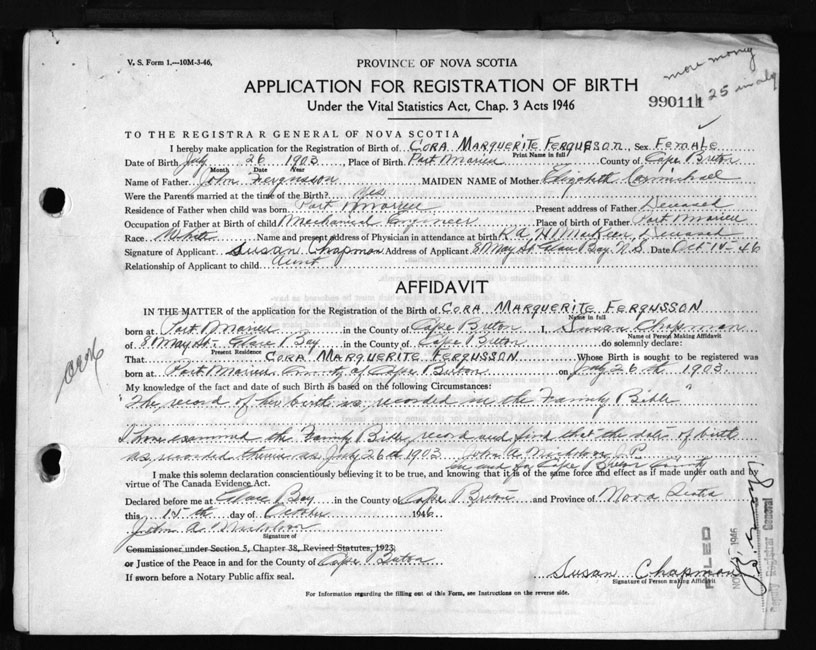 V. S. Form 1.—10M-3-46,
PROVINCE OF NOVA SCOTIA
more money
APPLICATION FOR REGISTRATION OF BIRTH
990111 25
Under the Vital Statistics Act, Chap. 3 Acts 1946
TO THE REGISTRAR GENERAL OF NOVA SCOTIA
I hereby make application for the Registration of Birth of CORA MARGUERITE FERGUSSON, Sex FEMALE
Print Name in full
Date of Birth July 26 1903, Place of Birth Port Morien County of Cape Breton
Month Date Year
Name of Father John Fergusson MAIDEN NAME of Mother Elizabeth
Were the Parents married at the time of the Birth? Yes
Residence of Father when child was born Port Morien Present address of Father Deceased
Occupation of Father at Birth of child Mechanical Engineer Place of birth of Father Port Morien
Race White Name and present address of Physician in attendance at birth Deceased
Signature of Applicant Susan Chapman Address of Applicant 8 May St Glace Bay, N.S. Date Oct-15-46
Relationship of Applicant to child Aunt
AFFIDAVIT
IN THE MATTER of the application for the Registration of the Birth of CORA MARGUERITE FERGUSSON
Name in full
born at Port Morien in the County of Cape Breton I, Susan Chapman
Name of Person Making Affidavit
of 8 May St- Glace Bay in the County of Cape Breton do solemnly declare:
Present Residence
That CORA MARGUERITE FERGUSSON Whose Birth is sought to be registered was
born at Port Morien County of Cape Breton on July 26th 1903
My knowledge of the fact and date of such Birth is based on the following Circumstances:
"The record of her birth as recorded in the Family Bible"
I have examined the Family Bible record and find that the date of birth
as recorded therein as July 26th 1903. John A. J.P.
in and for Cape Breton County
I make this solemn declaration conscientiously believing it to be true, and knowing that it is of the same force and effect as if made under oath and by
virtue of The Canada Evidence Act.
Declared before me at Glace Bay in the County of Cape Breton and Province of Nova Scotia
this 15th day of October 1946
John A.
Signature of
Commissioner under Section 5, Chapter 38, Revised Statutes, 1923,
or Justice of the Peace in and for the County of Cape Breton
If sworn before a Notary Public affix seal.
Susan Chapman
Signature of Person making Affidavit
For Information regarding the filling out of this Form, see Instructions on the reverse side.
FILED
NOV 1946
Deputy Registrar General